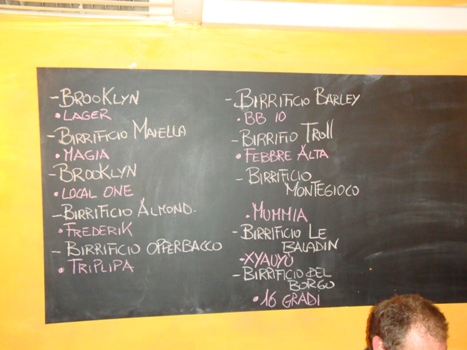 - BROOKLYN
• LAGER
- BIRRIFICIO MAIELLA
• MAGIA
- BROOKLYN
• LOCAL ONE
- BIRRIFICIO ALMOND.
• FREDERIK
- BIRRIFICIO OPPERBACCO
• TRIPLIPA
- BIRRIFICIO BARLEY
• BB 10
- BIRRIFIO TROLL
• FEBBRE ALTA
- BIRRIFICIO
MONTEGIOCO
• MUMMIA
- BIRRIFICIO LE
BALADIN
• XYAUYÙ
- BIRRIFICIO DEL
BORGO
• 16 GRADI